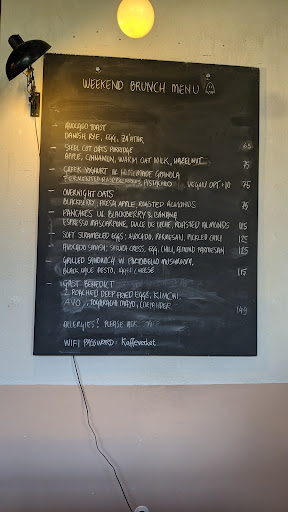 WEEKEND BRUNCH MENU
- AVOCADO TOAST
DANISH RYE, EGG, ZA'ATAR
- STEEL CUT OATS PORRIDGE 65
APPLE, CINNAMON, WARM OAT MILK, HAZELNUT
- GREEK YOGHURT W HOMEMADE GRANOLA 75
FERMENTED RASPBERRIES, PISTACHIO VEGAN OPT +10 75
- OVERNIGHT OATS
BLACKBERRY, FRESH APPLE, ROASTED ALMONDS 75
- PANCAKES W BLACKBERRY & BANANA
ESPRESSO MASCARPONE, DULCE DE LECHE, ROASTED ALMONDS 125
- SOFT SCRAMBLED EGGS: AVOCADO, PARMESAN, PICKLED CHILI 125
- AVOCADO SMASH: EGG, CHILI, ALMOND PARMESAN 125
- GRILLED SANDWICH W PORTOBELLO MUSHROOM,
BLACK KALE PESTO, CHEESE 115
- BENEDICT
2 POACHED DEEP FRIED EGGS, KIMCHI
AVO, TOGARASHI MAYO, CORIANDER 149
ALLERGIES? PLEASE ASK
WIFI PASSWORD: Kaffeverket